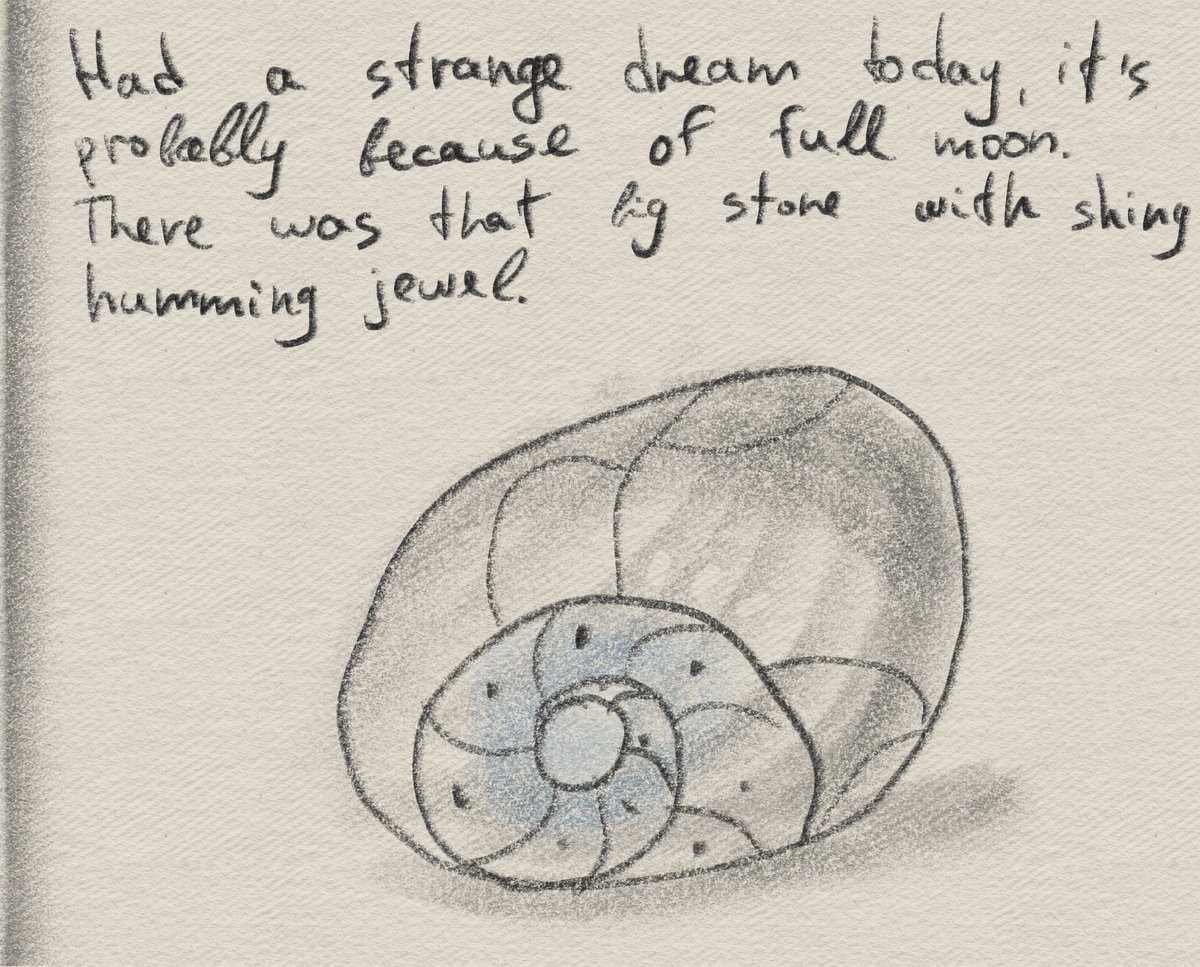 Had a strange dream today, it's
probably because of full moon.
There was that big stone with shing
humming jewel.